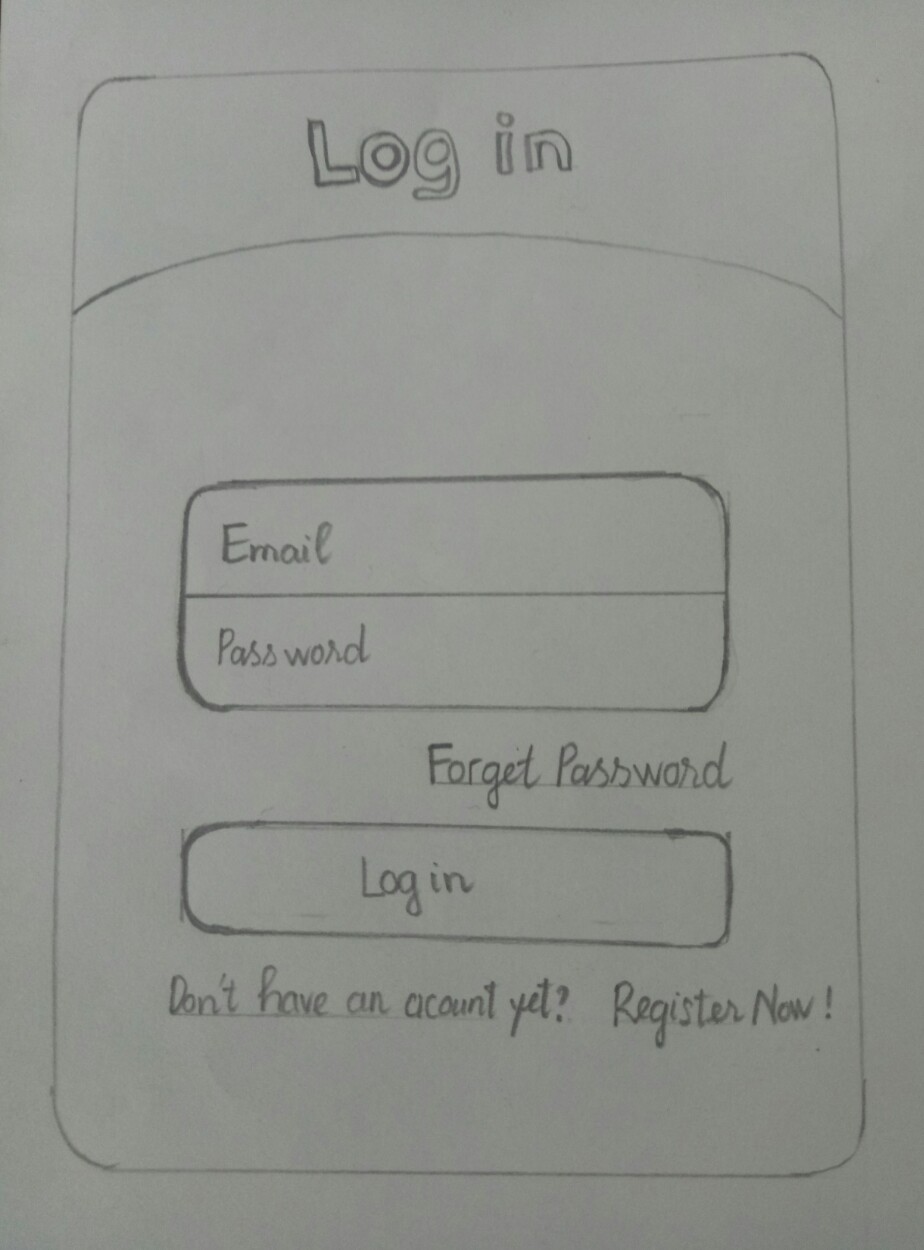 Log in
Email
Password
Forget Password
Log in
Don't have an acount yet? Register Now!